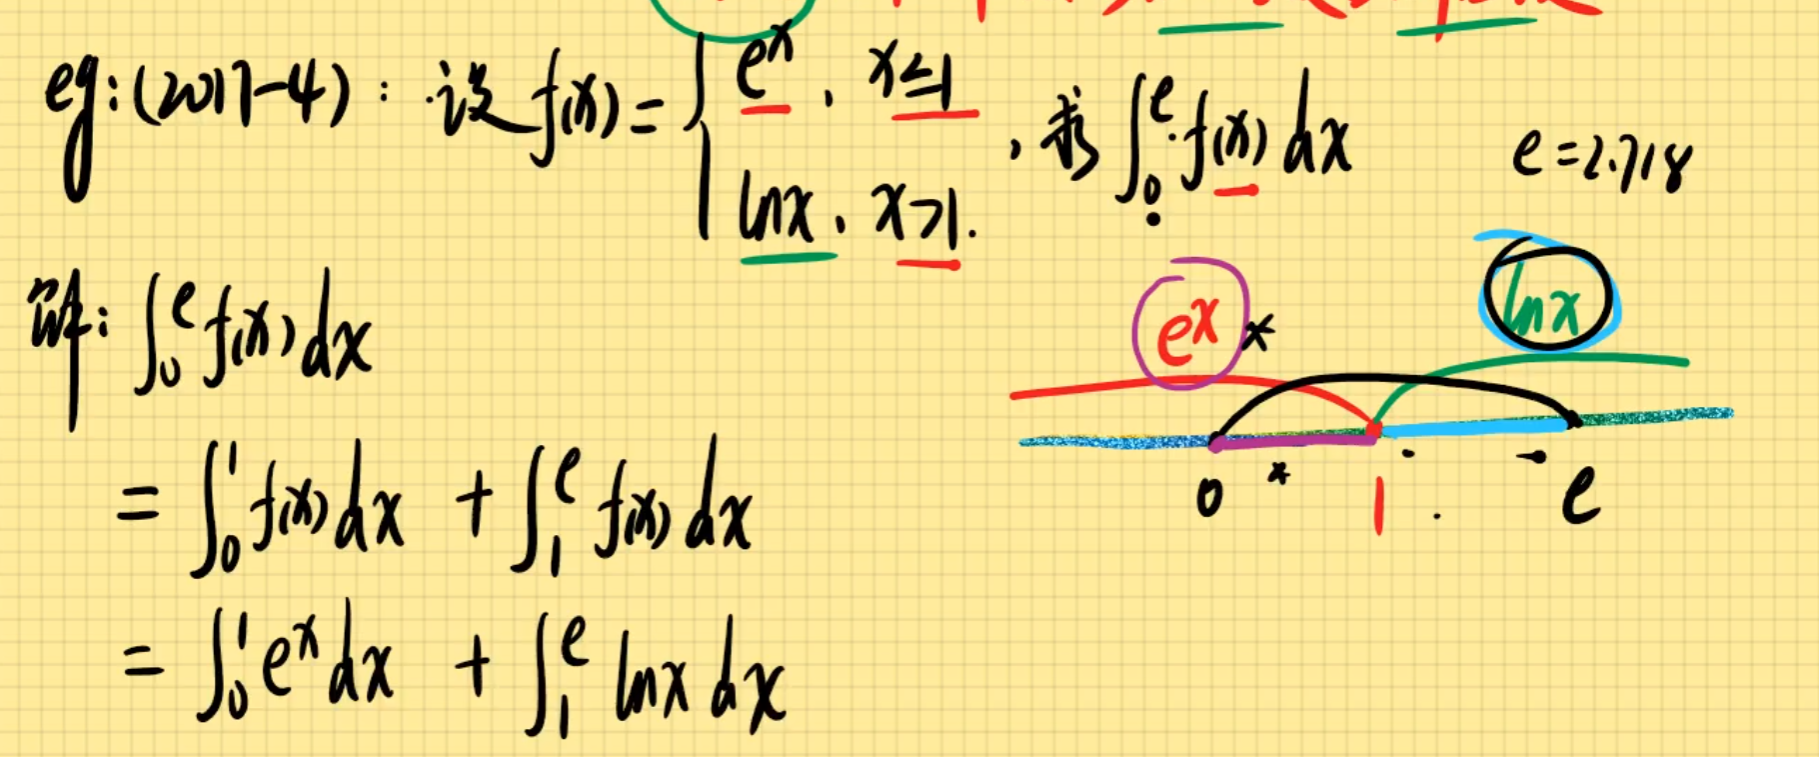 eg:(2017-4): 设 f(x)={ e^x, x≤1
lnx, x>1. , 求 ∫_0^e f(x) dx
e=2.718
解: ∫_0^e f(x) dx
= ∫_0^1 f(x) dx + ∫_1^e f(x) dx
= ∫_0^1 e^x dx + ∫_1^e lnx dx
e^x *
lnx
0 * 1 e